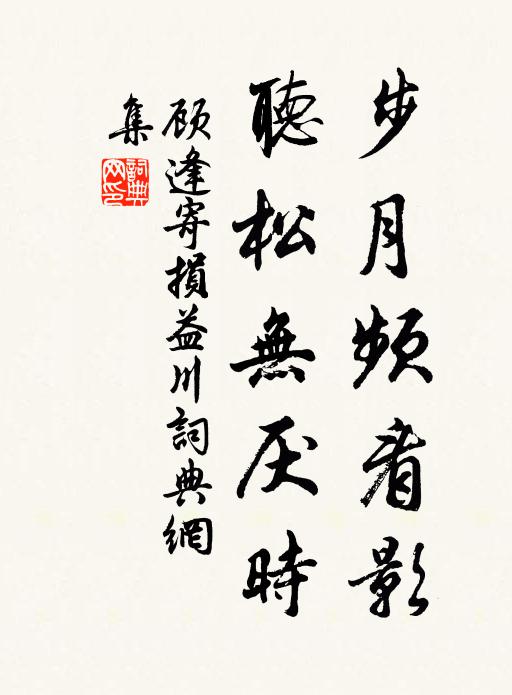 步月频看影
聽松無厌時
顾逢寄損益川詞典網
集
詞典網印